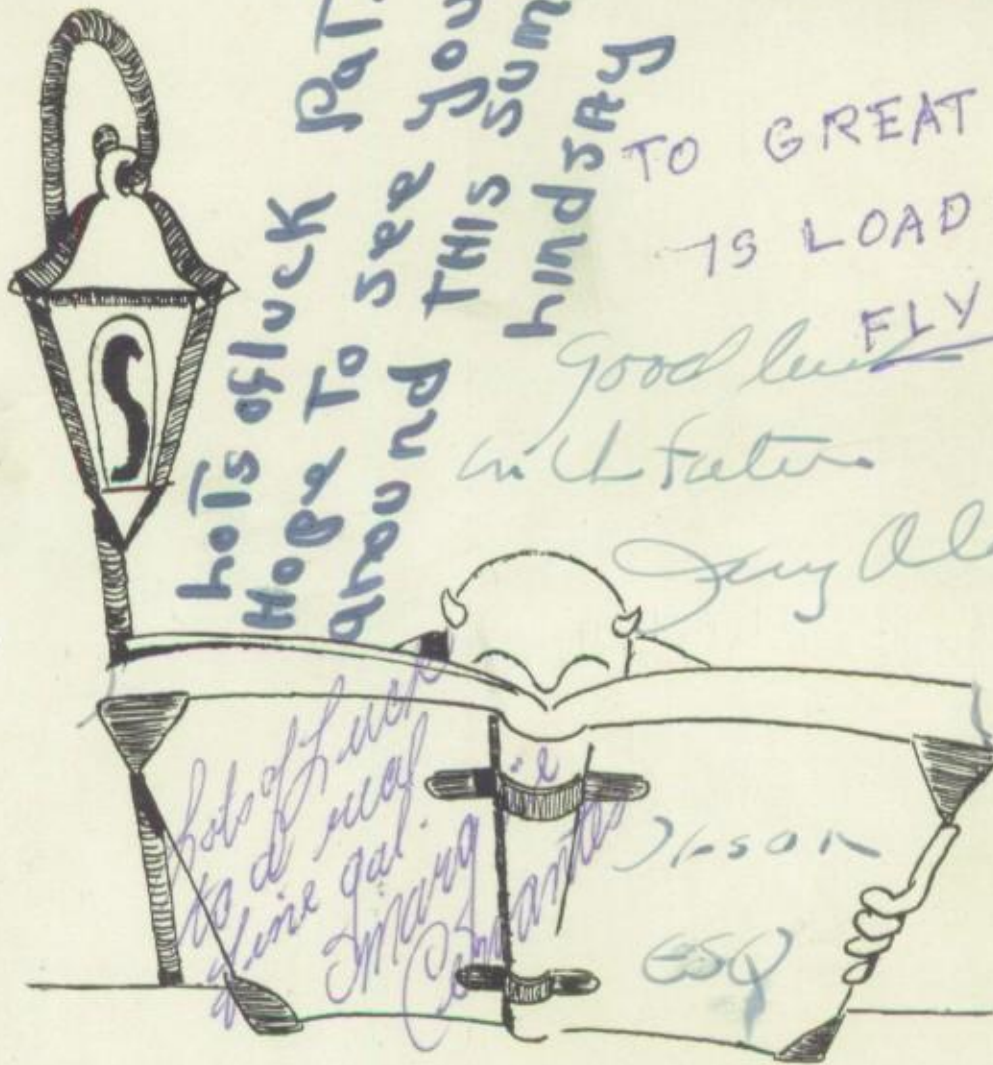 S
Lots of luck Pat.
Hope To see you
around THIS sum
hindsay
TO GREAT
IS LOAD
FLY
Good luck
with Future
Jerry
Lots of Luck
to a real
fine gal.
ESQ